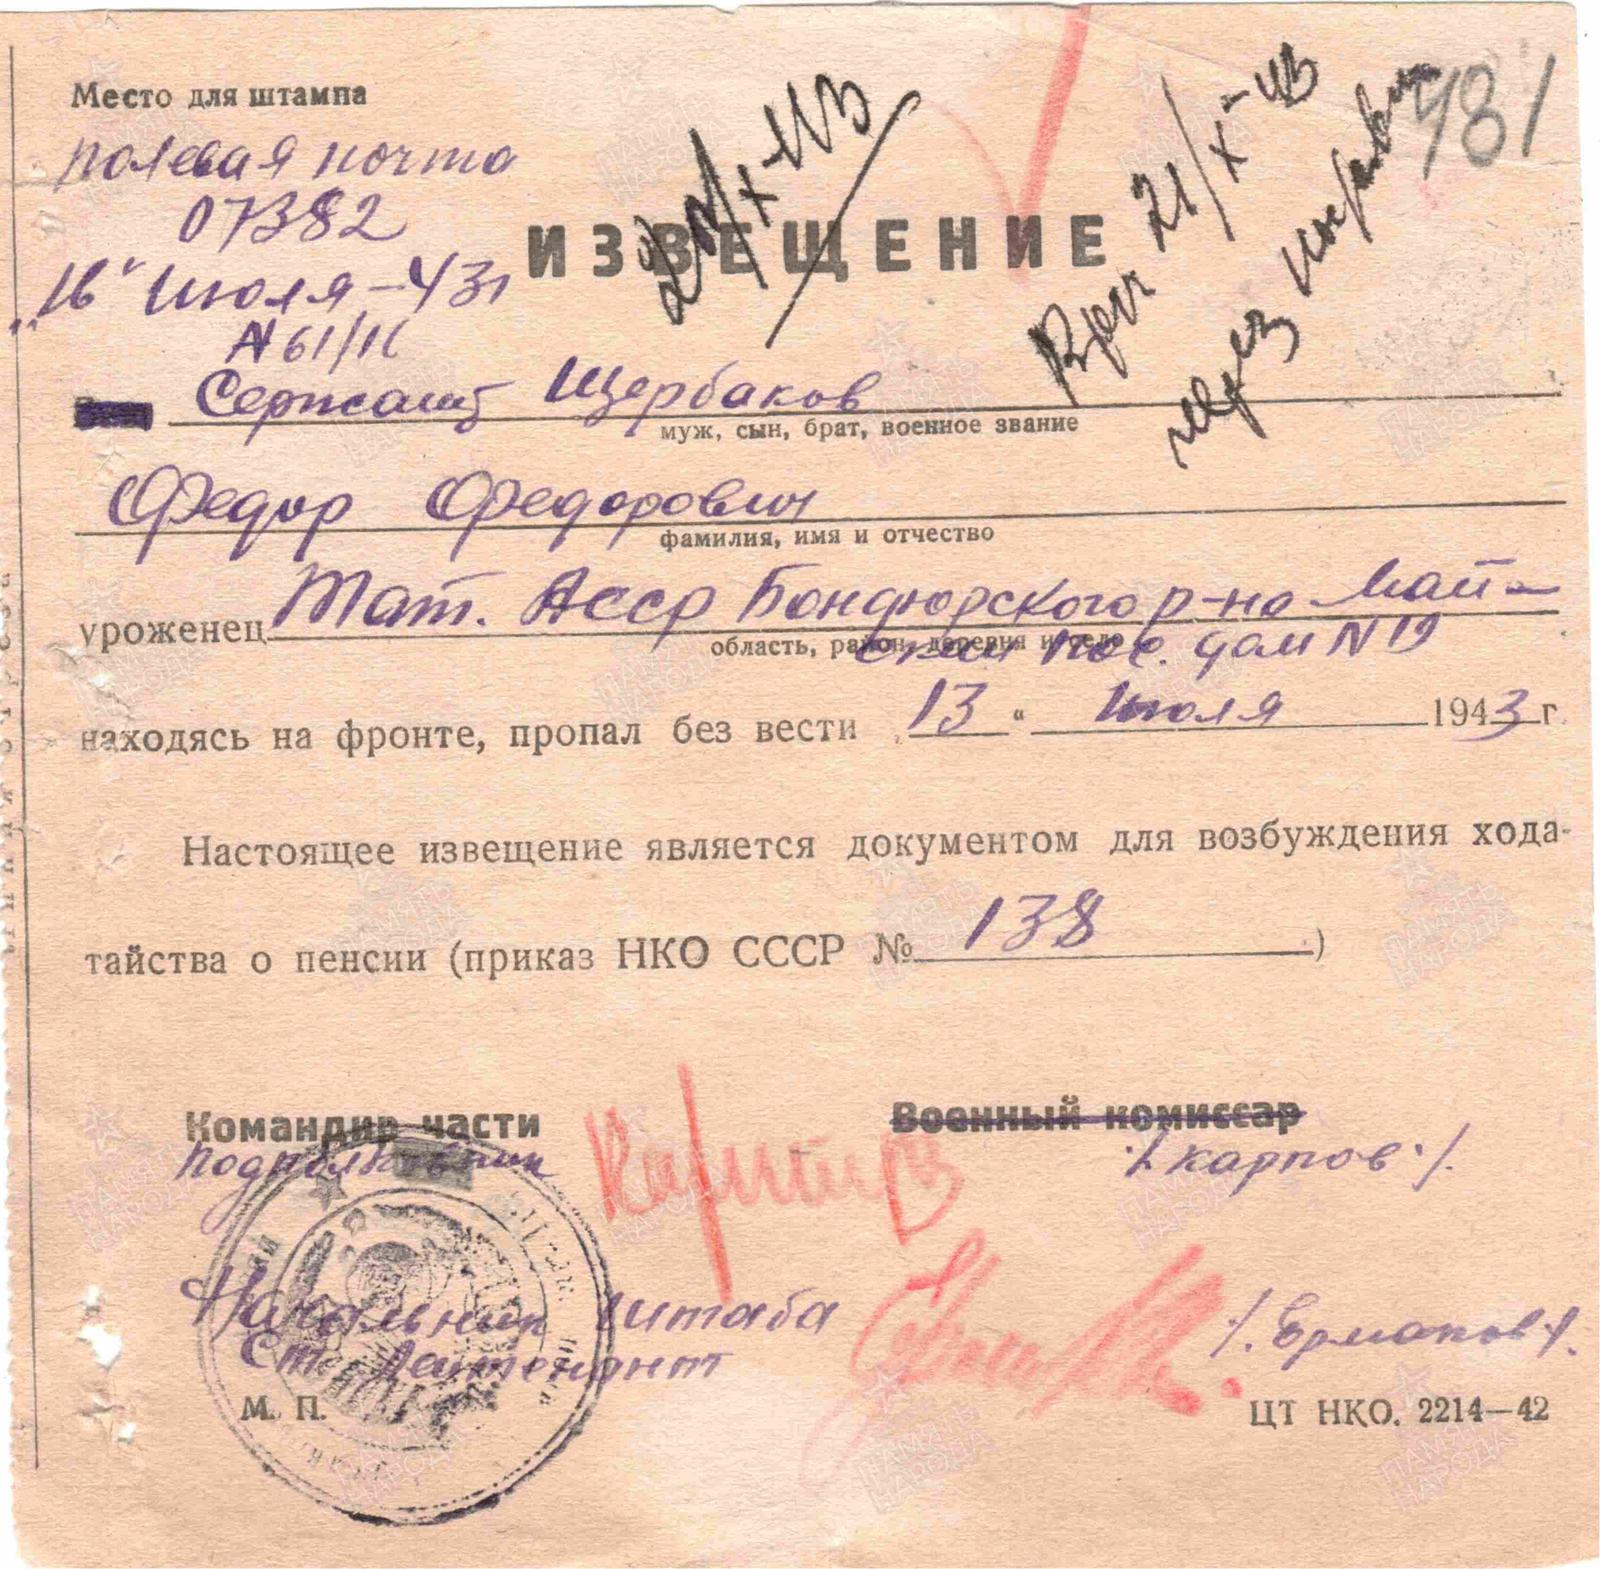 Место для штампа
Полевая почта
07382
"16" Июля-43г
N61/11
481
21/X-43
Вруч 21/X-43
через
ИЗВЕЩЕНИЕ
Сержант Щербаков
муж, сын, брат, военное звание
Федор Федорович
фамилия, имя и отчество
уроженец Тат. Асср Бондюрского р-на Май-
область, район, деревня и село
ский пос. дом N 19
находясь на фронте, пропал без вести "13" Июля 1943 г.
Настоящее извещение является документом для возбуждения хода-
тайства о пенсии (приказ НКО СССР № 138)
Командир части Военный комиссар
подполковник /Карпов/.
Начальник штаба /.Ермаков/.
Ст. Лейтенант
М. П.
ЦТ НКО. 2214—42
ПАМЯТЬ НАРОДА